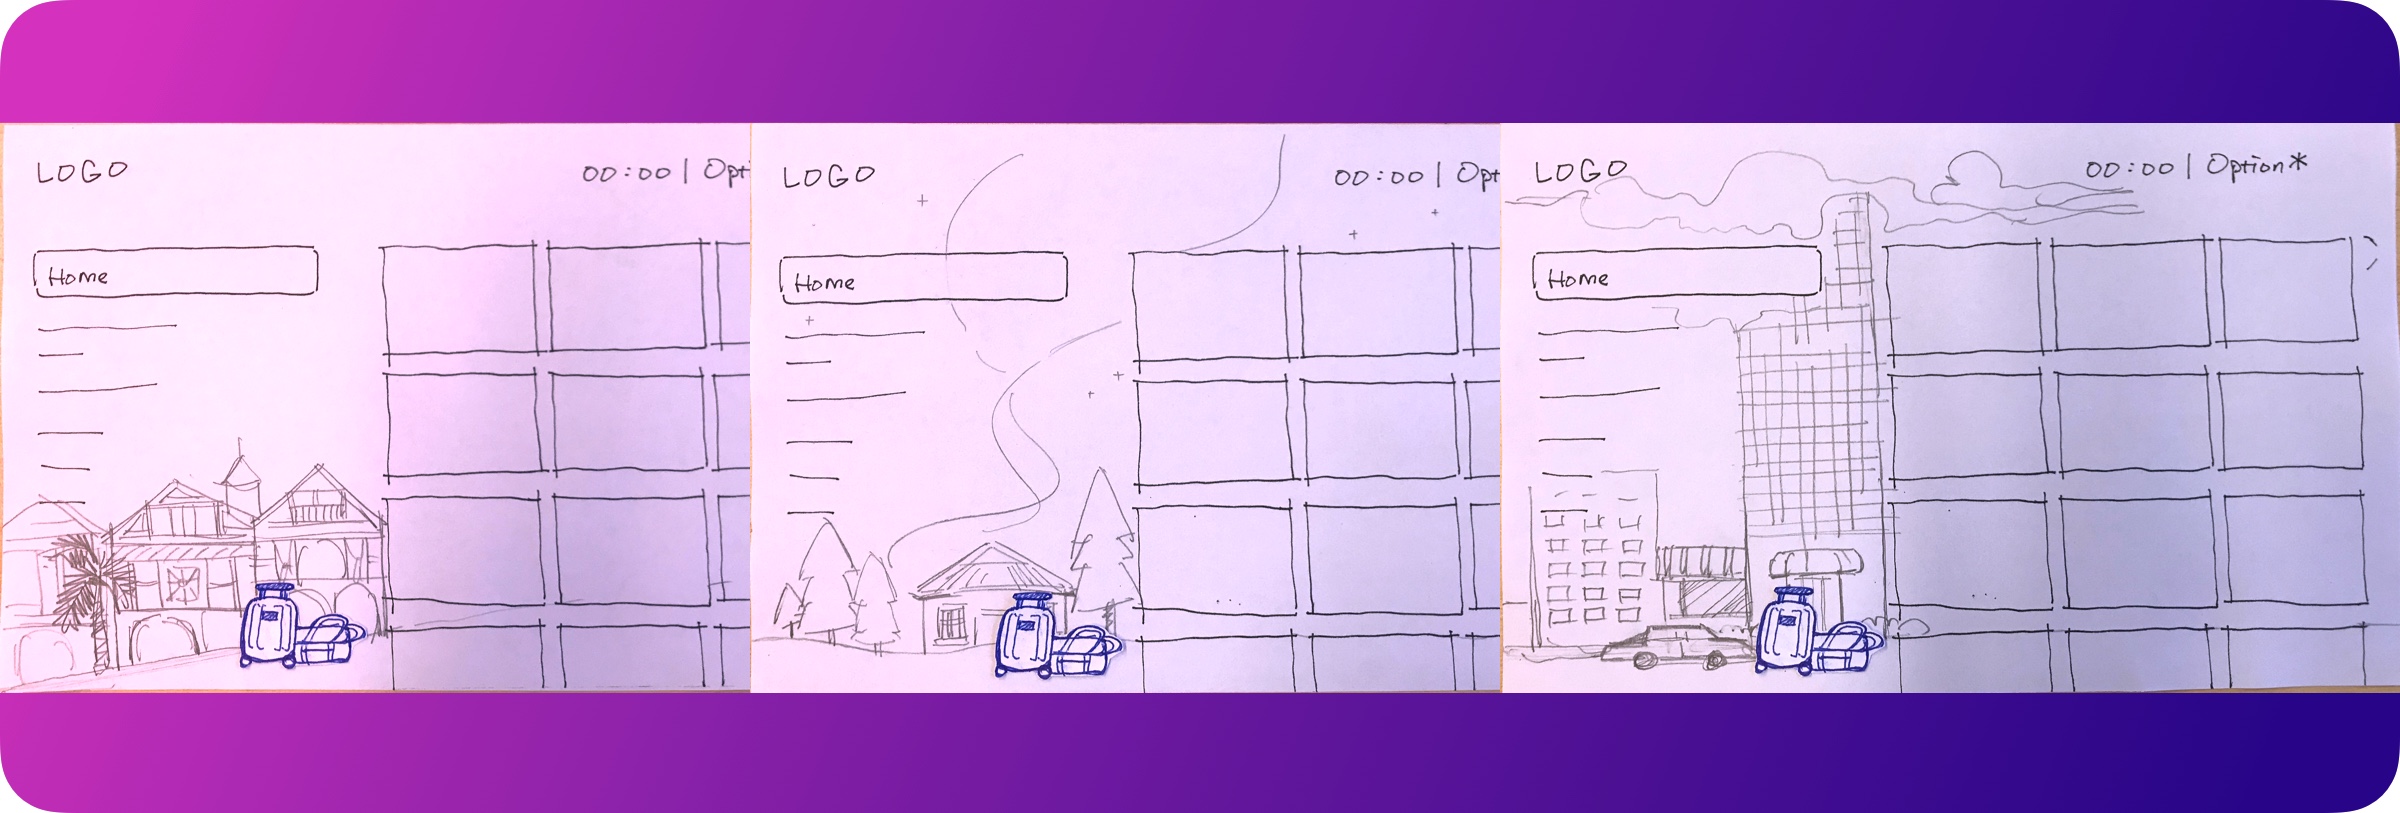 LOGO
00:00 | Opti
Home
LOGO
00:00 | Opt
Home
LOGO
00:00 | Option*
Home